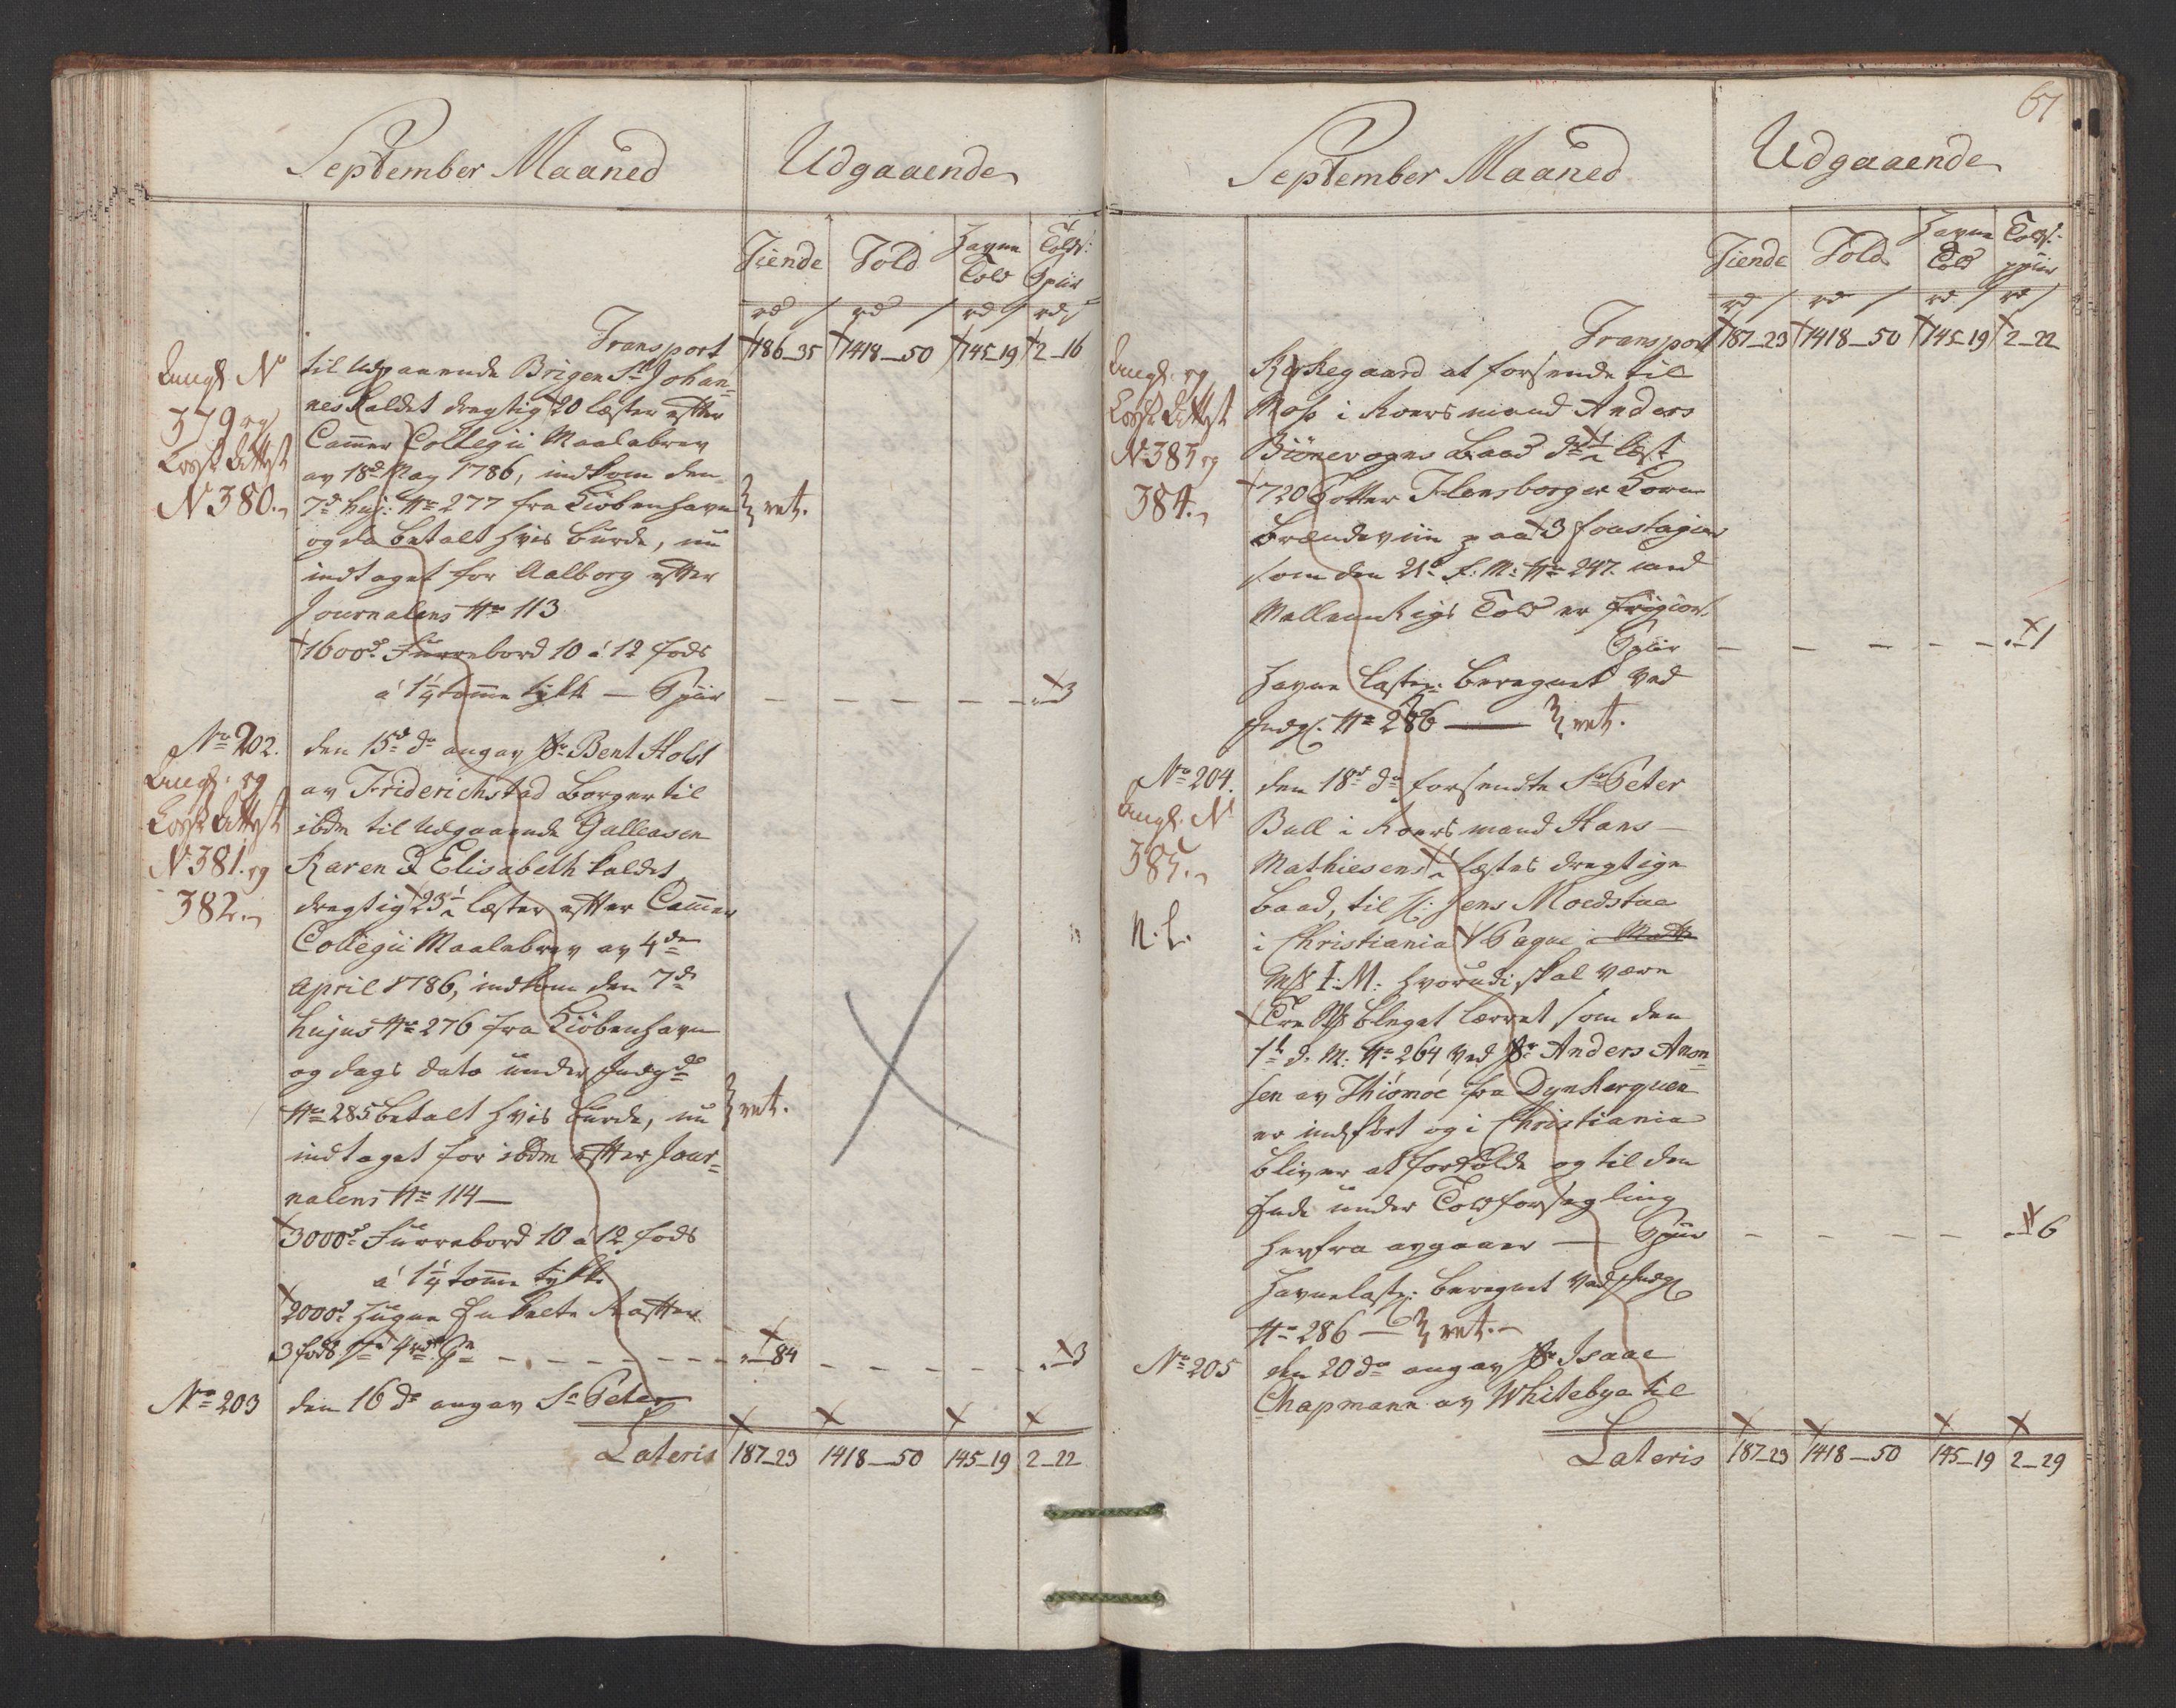 September Maaned
Udgaaende
Tiende Told Havne Told Told: Spiir
rd s rd s rd s rd s
Transport 186_35 1418_50 145_19 2_16
N
379 og
Attest
N 380.
til Udgaaende Brigen St Johan=
nes kaldet drægtig 20 læster efter
Cammer Collegii Maalebrev
av 18d May 1786, indkom den
7d huj: No 277 fra Kiöbenhavn
og da betalt hvis burde, nu
indtaget for Aalborg efter
Journalens No 113
1600d Furrebord 10 á 12 fods
á 1¼ tomme tykk — Spiir - - - - - 3
No 202.
og
Attest
N 381. og
382.
den 15d do angav Sr Bent Holst
av Friderichstad Borger til
ibdm til Udgaaende Galleasen
Karen & Elisabeth kaldet
drægtig 23½ læster efter Cammer
Collegii Maalebrev av 4de
April 1786, indkom den 7d
hujus No 276 fra Kiöbenhavn
og dags dato under Indgde
No 285 betalt hvis burde, nu
indtaget for ibdm efter Jour=
nalens No 114 —
3000d Furrebord 10 á 12 fods
á 1¼ tomme tykk
2000d Hugne Enkelte
3 fods - - - - 84 - - - - 3
No 203 den 16 do angav Sr Peter
Lateris 187_23 1418_50 145_19 2_22
67
September Maaned
Udgaaende
Tiende Told Havne Told Told: Spiir
rd s rd s rd s rd s
Transport 187_23 1418_50 145_19 2_22
og
Attest
No 383 og
384.
Kirkegaard at forsende til
Moss i Roersmand Anders
Biönevogns Baad dr 1½ læst
720 Potter Flensborger Korn
Brændeviin paa 3 foustagier
som den 21d f: M: No 247. imod
Mellemrigs Told er
Spiir - - - - - 1
Havne Laste: beregnet ved
Indg: No 286 —
No 204.
N
385.
N. L.
den 18d do forsendte Sr Peter
Bull i Roersmand Hans
Mathiesens ½ læstes drægtige
Baad, til Hr: Jens Moestue
i Christiania 1 Pagne
Mrk I: M: hvorudi skal være
Tre Stk bleget lærret som den
1t d. M. No 264 ved Sr Anders Amon=
sen av Thiömöe fra Dynkerquen
er indfört og i Christiania
bliver at fortolde og til den
Ende under Toldforsegling
herfra avgaaer — Spiir - - - - 6
Havnelaste: beregnet ved Indg
No 286 —
No 205 den 20 do angav Sr Isaac
Chapmann av Whitebye til
Lateris 187_23 1418_50 145_19 2_29